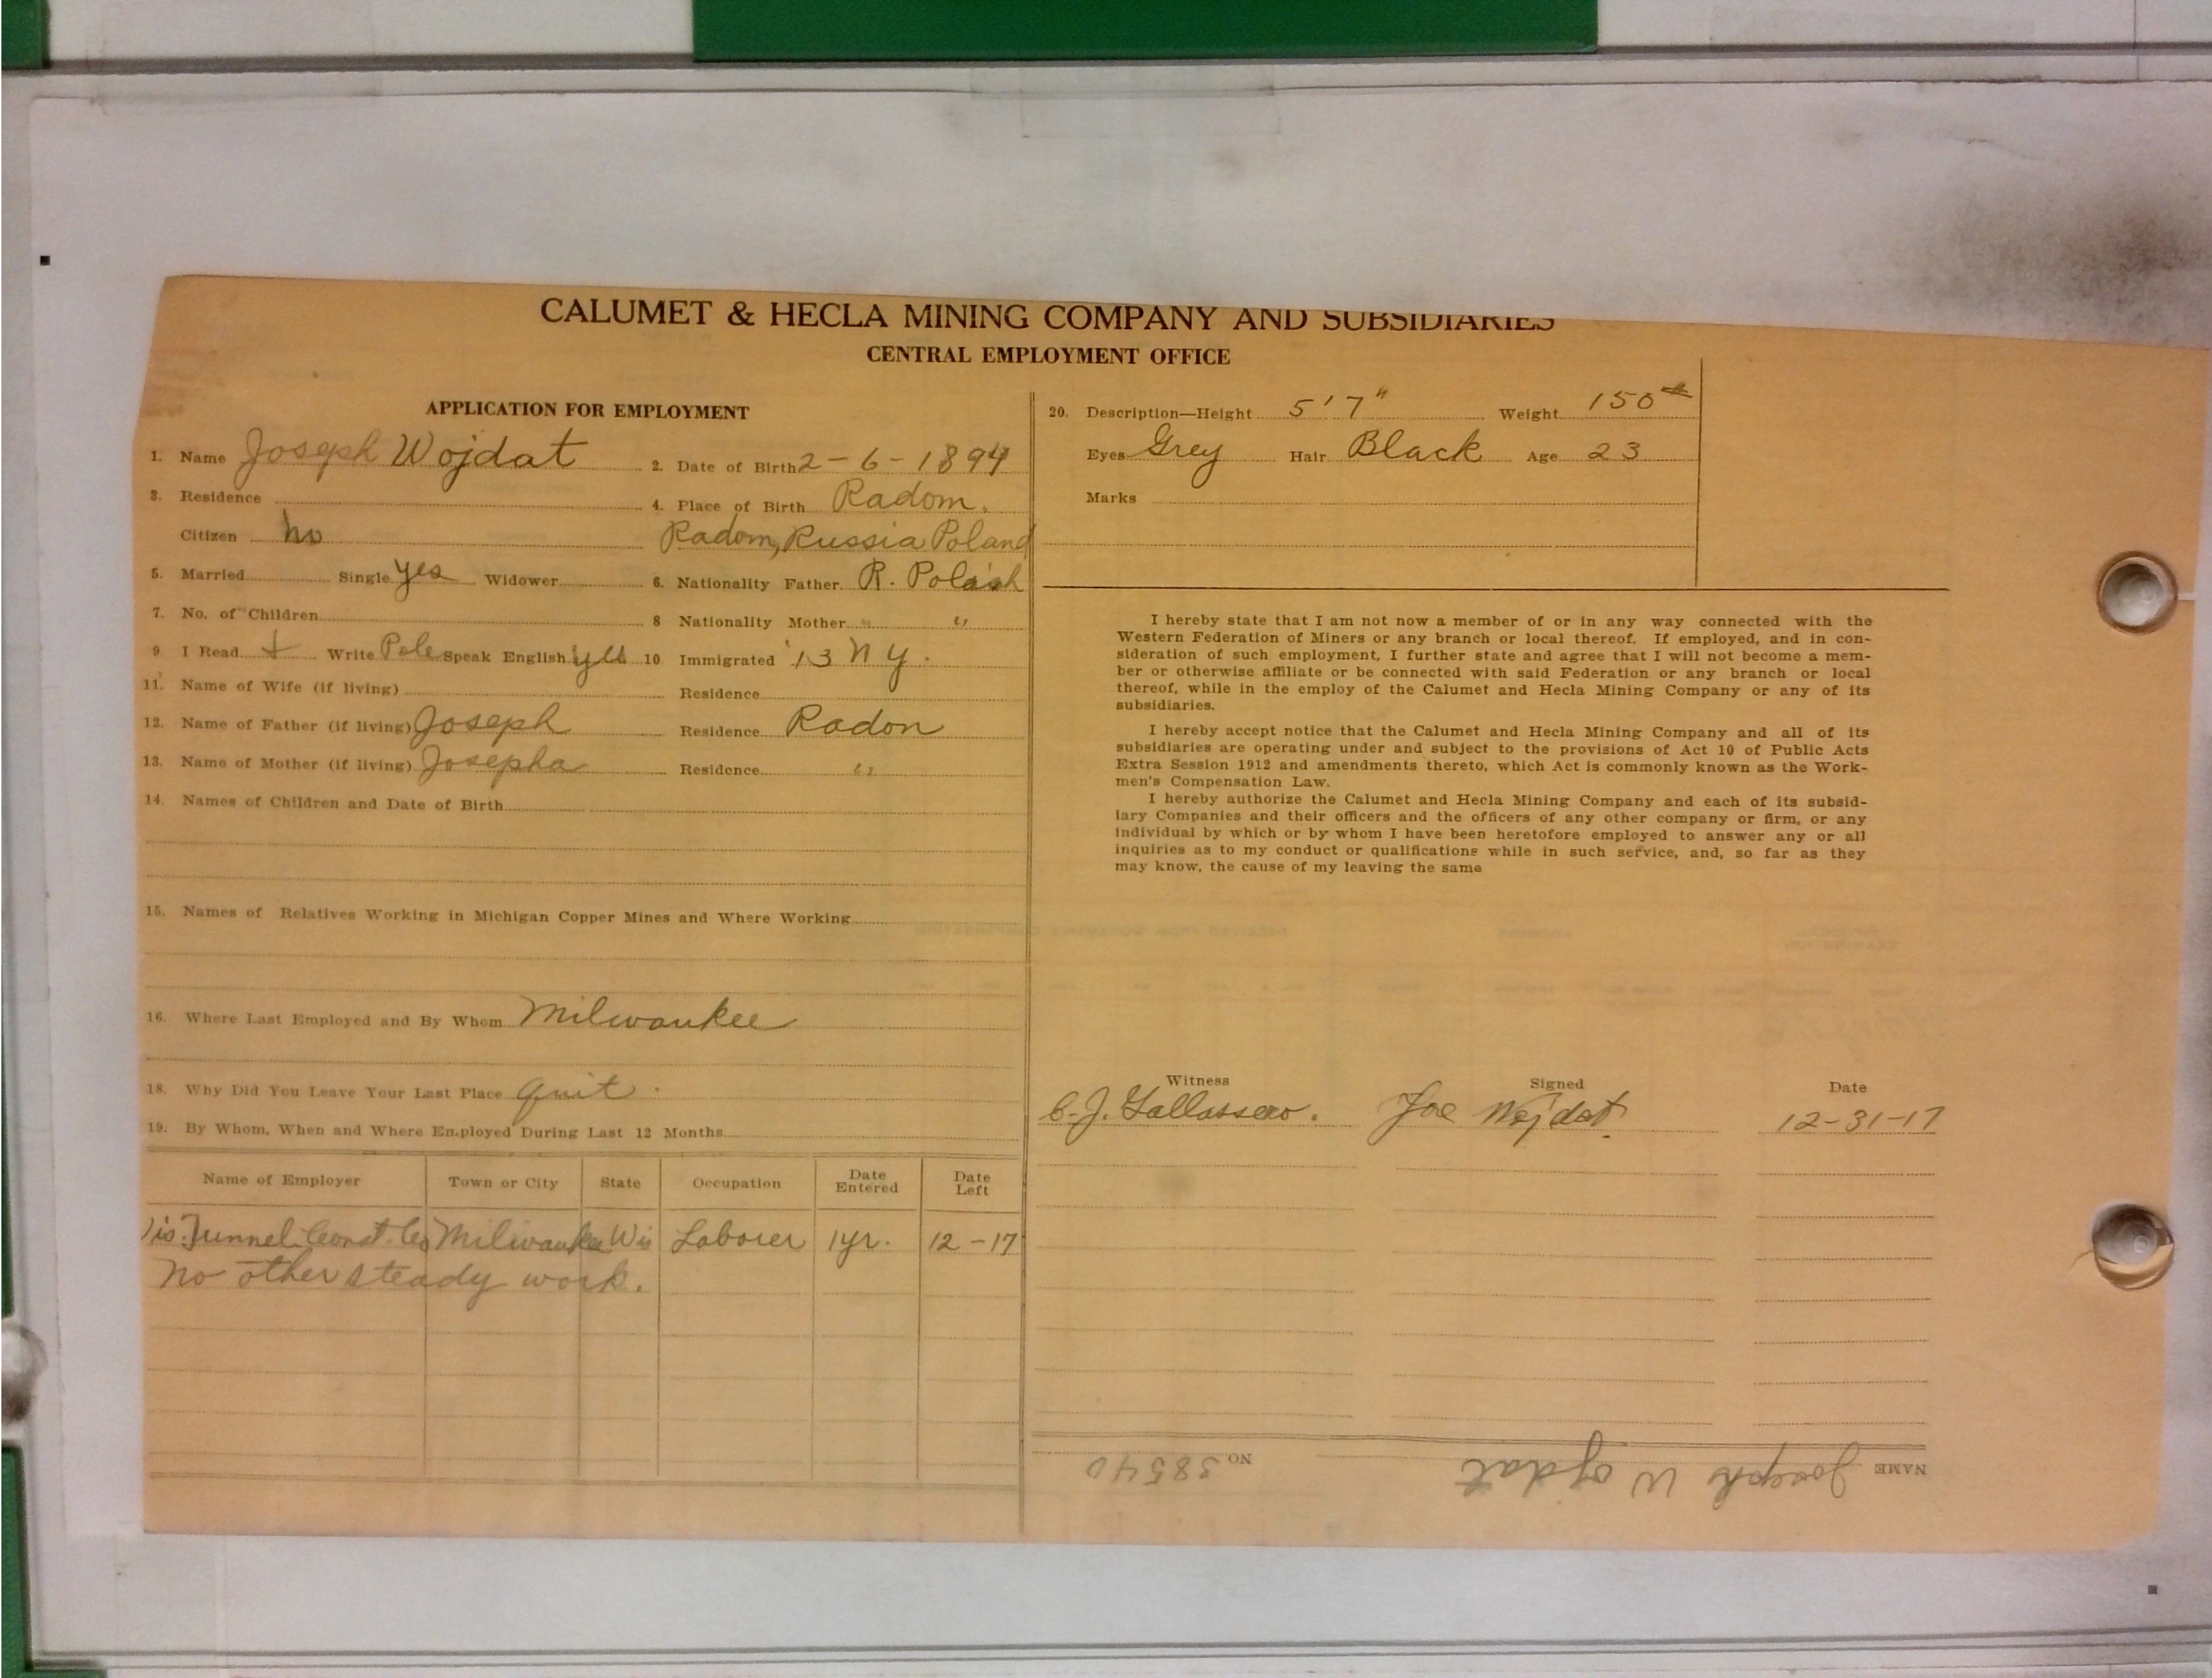 CALUMET & HECLA MINING COMPANY AND SUBSIDIARIES
CENTRAL EMPLOYMENT OFFICE
APPLICATION FOR EMPLOYMENT
1. Name Joseph Wojdat 2. Date of Birth 2-6-1894
3. Residence 4. Place of Birth Radom.
Citizen no Radom, Russia Poland
5. Married Single yes Widower 6. Nationality Father R. Polish
7. No. of Children 8 Nationality Mother " "
9. I Read + Write Pole Speak English yes 10 Immigrated '13 N Y.
11. Name of Wife (if living) Residence
12. Name of Father (if living) Joseph Residence Radon
13. Name of Mother (if living) Josepha Residence "
14. Names of Children and Date of Birth
15. Names of Relatives Working in Michigan Copper Mines and Where Working
16. Where Last Employed and By Whom Milwaukee
18. Why Did You Leave Your Last Place Quit.
19. By Whom, When and Where Employed During Last 12 Months
Name of Employer Town or City State Occupation Date Entered Date Left
is. Tunnel Const. Co Milwaukee Wis Laborer 1yr. 12-17
No other steady work.
20. Description—Height 5'7" Weight 150#
Eyes Grey Hair Black Age 23
Marks
I hereby state that I am not now a member of or in any way connected with the
Western Federation of Miners or any branch or local thereof. If employed, and in con-
sideration of such employment, I further state and agree that I will not become a mem-
ber or otherwise affiliate or be connected with said Federation or any branch or local
thereof, while in the employ of the Calumet and Hecla Mining Company or any of its
subsidiaries.
I hereby accept notice that the Calumet and Hecla Mining Company and all of its
subsidiaries are operating under and subject to the provisions of Act 10 of Public Acts
Extra Session 1912 and amendments thereto, which Act is commonly known as the Work-
men's Compensation Law.
I hereby authorize the Calumet and Hecla Mining Company and each of its subsid-
iary Companies and their officers and the officers of any other company or firm, or any
individual by which or by whom I have been heretofore employed to answer any or all
inquiries as to my conduct or qualifications while in such service, and, so far as they
may know, the cause of my leaving the same
Witness Signed Date
C. J. Joe Wojdat. 12-31-17
NAME Joseph Wojdat NO. 38540